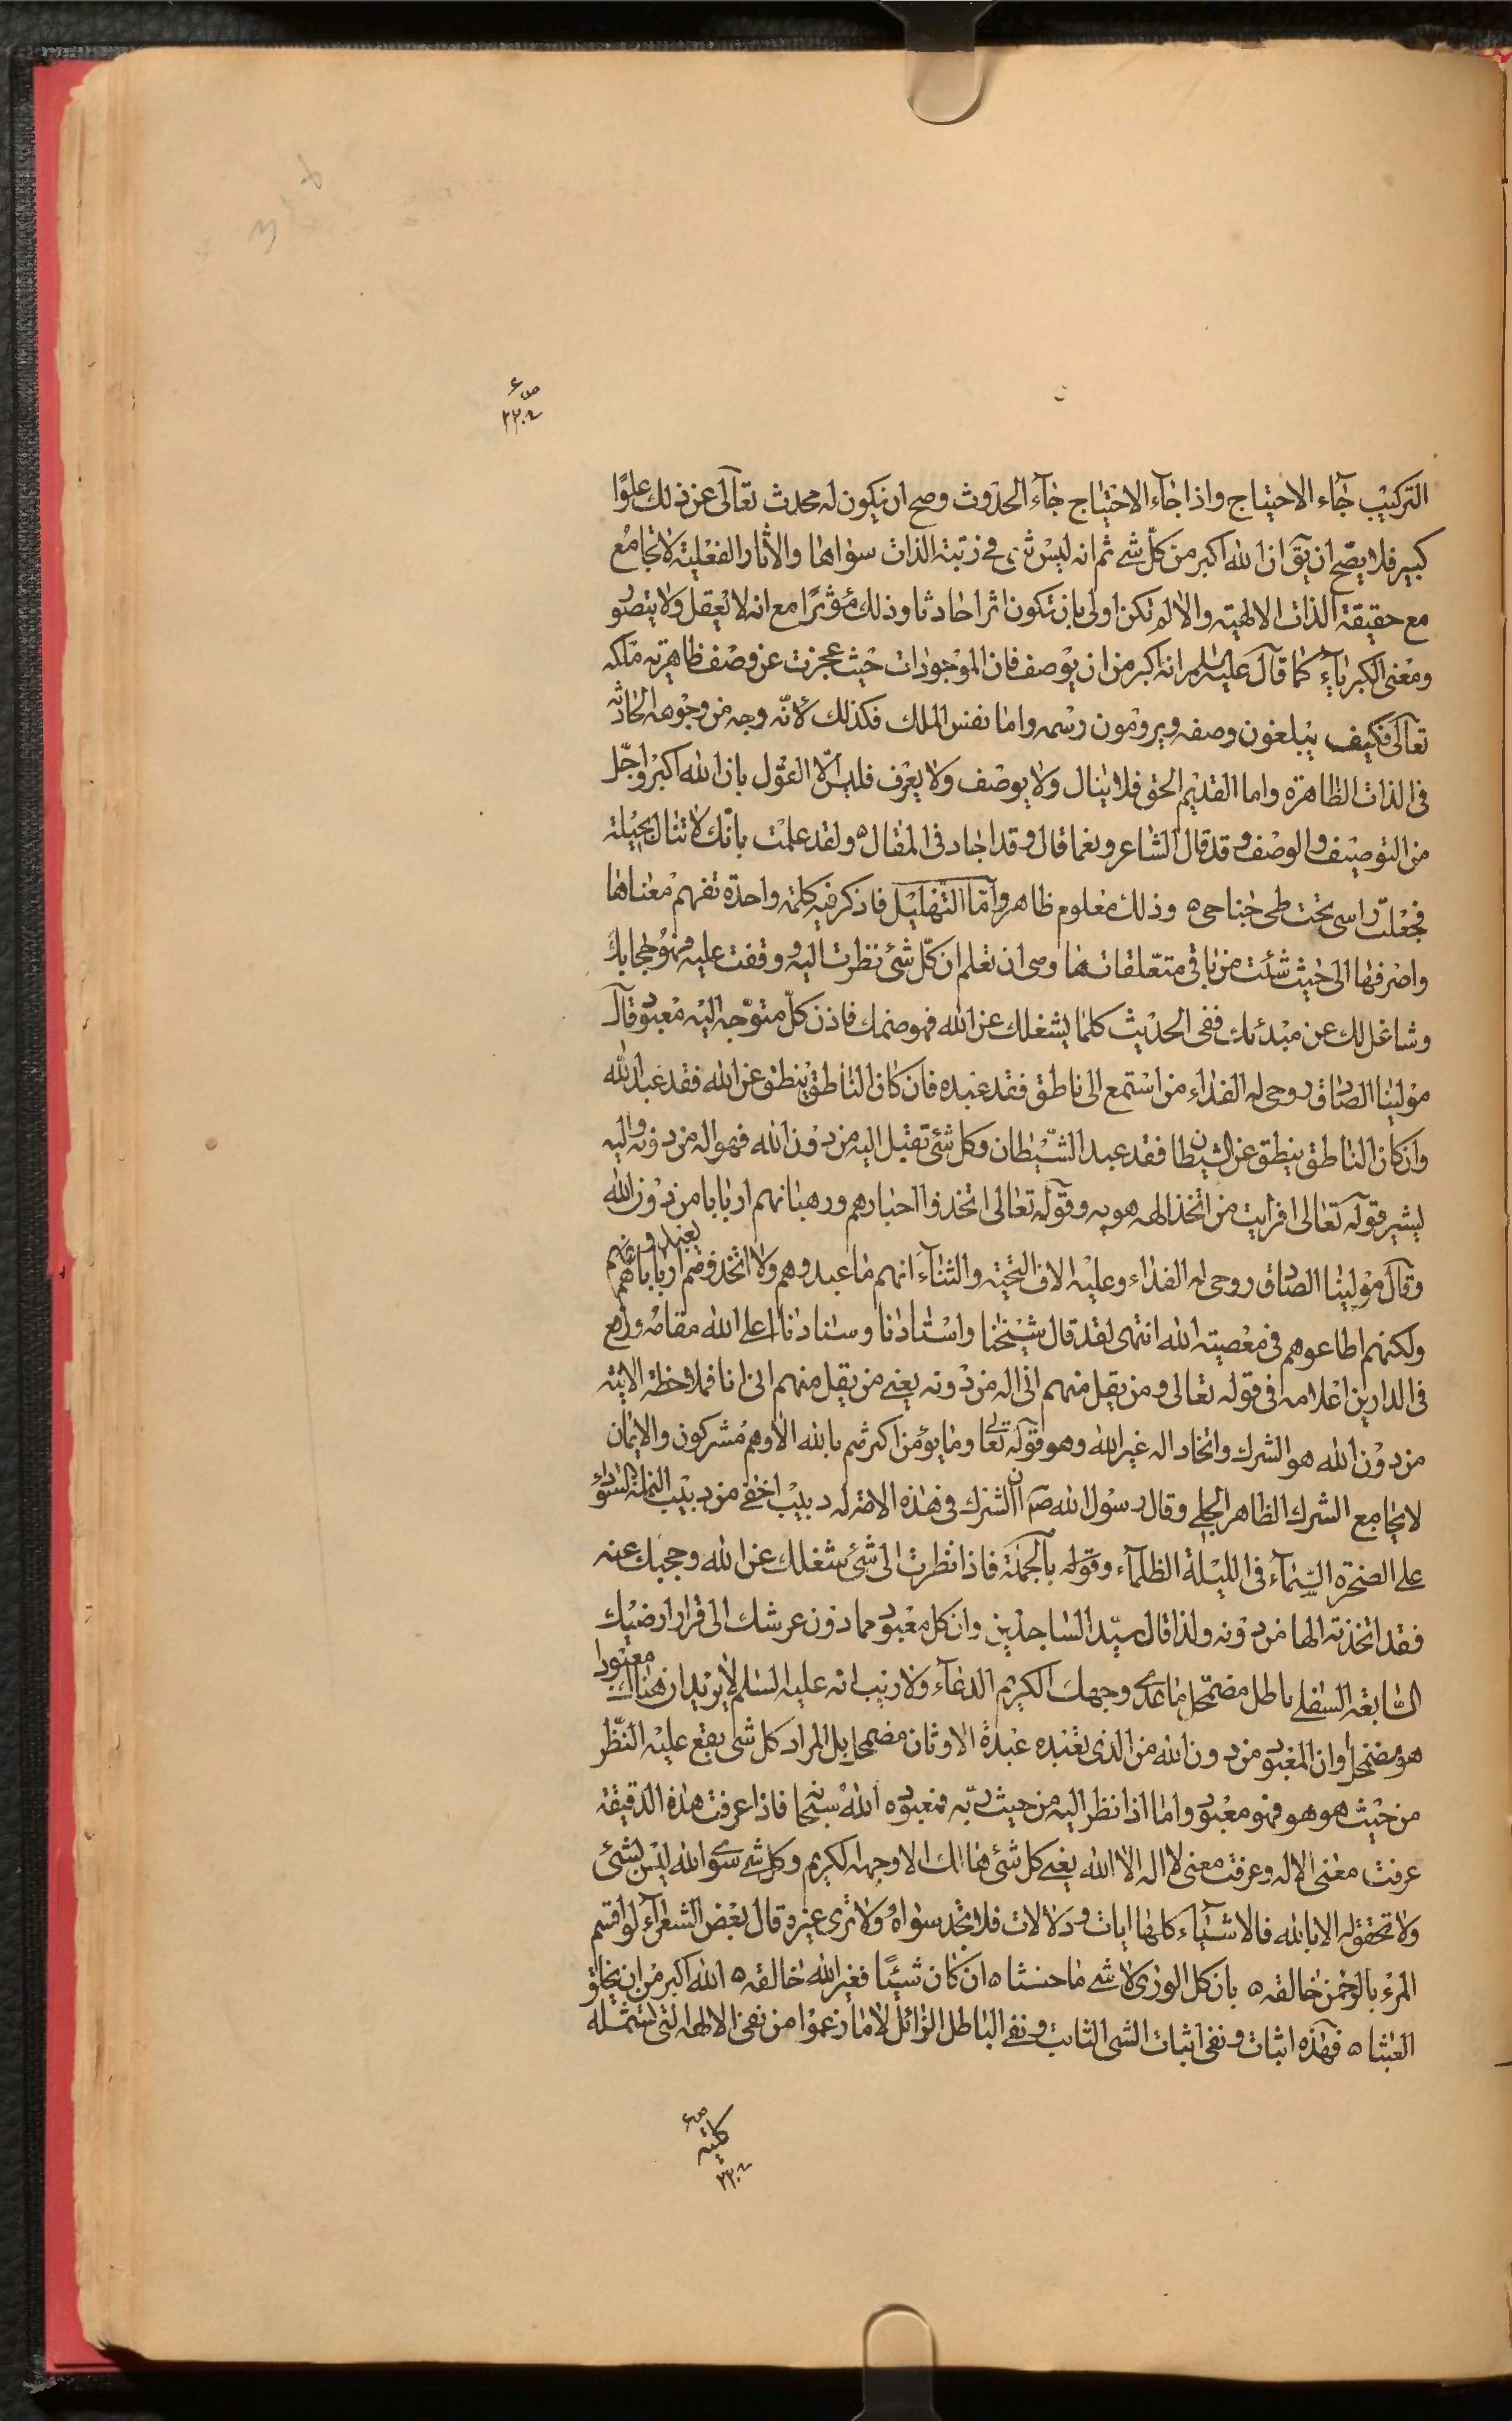 التركيب جاء الاحتياج واذا جاء الاحتياج جاء الحدوث وصح ان يكون له محدث تعالى عن ذلك علوّا
كبير فلا يصّح ان يق ان الله اكبر من كلّ شئ ثم انه ليس شئ فى رتبة الذات سواها والاثار الفعلية لا تجامع
مع حقيقة الذات الالهية والا لم تكن اولى بان تكون اثرا حادثا وذلك مؤثرًا مع انه لا يعقل ولا يتصور
ومعنى الكبرياء كما قال عليه السلم انه اكبر من ان يوصف فان الموجودات حيث عجزت عن وصف ظاهرية ملكه
تعالى فكيف يبلغون وصفه ويرومون رسمه واما نفس الملك فكذلك لانّه وجه من وجوهه الحادثه
فى الذات الظاهرة واما القديم الحق فلا ينال ولا يوصف ولا يعرف فليس الّا القول بان الله اكبر واجّل
من التوصيف والوصف وقد قال الشاعر ونعما قال وقد اجاد فى المقال ه ولقد علمت بانك لا تنال بحيلة
فجعلت راسى تحت طى جناحى ه وذلك معلوم ظاهر وامّا التهليل فاذكر فيه كلمة واحدة تفهم معناها
واصرفها الى حيث شئت من باقى متعلقاتها وهى ان تعلم ان كلّ شئ نظرت اليه ووقفت عليه فهو حجابك
وشاغل لك عن مبدئك ففى الحديث كلما يشغلك عن الله فهو صنمك فاذن كلّ متوّجه اليه معبود قال
مولينا الصادق روحى له الفداء من استمع الى ناطق فقد عبده فان كان الناطق ينطق عن الله فقد عبد الله
وان كان الناطق ينطق عن الشيطان فقد عبد الشّيطان وكل شئ تقبل اليه من دون الله فهو اله من دونه واليه
يشير قوله تعالى افرايت من اتخذ الهه هويه وقوله تعالى اتخذوا احبارهم ورهبانهم اربابا من دون الله
وقال مولينا الصادق روحى له الفداء وعليه الاف التحية والثناء انهم ما عبدوهم ولا اتخذوهم اربابا
ولكنهم اطاعوهم فى معصية الله انتهى لقد قال شيخنا واستادنا وسنادنا اعلى الله مقامه ورفع
فى الدارين اعلامه فى قوله تعالى ومن يقل منهم انى اله من دونه يعنى من يقل منهم انى انا فملاحظة الانية
من دون الله هو الشرك واتخاد اله غير الله وهو قوله تعالى وما يؤمن اكثرهم بالله الا وهم مشركون والايمان
لا يجامع الشرك الظاهر الجلى وقال رسول الله ص ان الشرك فى هذه الامة له دبيب اخفى من دبيب النملة السوداء
على الصخرة الصّماء فى الليلة الظلماء وقوله بالجملة فاذا نظرت الى شئ شغلك عن الله وحجبك عنه
فقد اتخذته الها من دونه ولذا قال سيّد الساجدين وان كل معبود مما دون عرشك الى قرار ارضيك
السّابعة السفلى باطل مضمحل ما عدى وجهك الكريم الدعاء ولا ريب انه عليه السلم لا يريد ان هناك معبودا
هو مضمحل وان المعبود من دون الله من الذى تعبده عبدة الاوثان مضمحل بل المراد كل شئ يقع عليه النّظر
من حيث هو هو فهو معبود واما اذا نظر اليه من حيث ربّه فمعبوده الله سبحانه فاذا عرفت هذه الدقيقة
عرفت معنى الاله وعرفت معنى لا اله الا الله يعنى كل شئ هالك الا وجهه الكريم وكل شئ سوى الله ليس بشئ
ولا تحقق له الا بالله فالاشياء كلها ايات ودلالات فلا تجد سواه ولا ترى غيره قال بعض الشعراء لو اقسم
المرء بالرحمن خالقه ه بان كل الورى لا شئ ما حنثا ه ان كان شيئًا فغير الله خالقه ه الله اكبر من ان يخلق
العبثا ه فهذه اثبات ونفى اثبات الشى الثابت ونفى الباطل الزائل لا ما زعموا من نفى الالهه التى